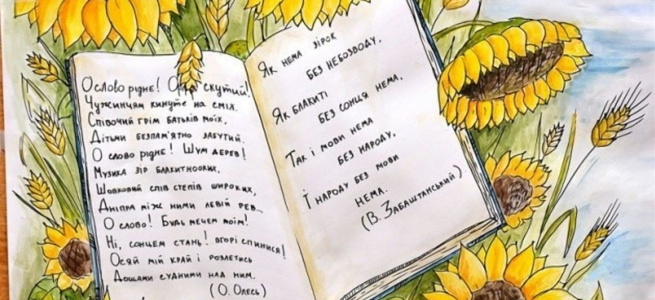 О слово рідне! Орле скутий!
Чужинцям кинуте на сміх.
Співочий грім батьків моїх,
Дітьми безпам'ятно забутий.
О слово рідне! Шум дерев!
Музика зір блакитнооких,
Шовковий спів степів широких,
Дніпра між ними левій рев...
О слово! Будь мечем моїм!
Ні, сонцем стань! вгорі спинися!
Осяй мій край і розлетись
Дощами судними над ним.
(О. Олесь)
Як нема зірок
без небозводу,
Як блакиті
без сонця нема,
Так і мови нема
без народу,
Ї народу без мови
нема.
(В. Забаштанський)